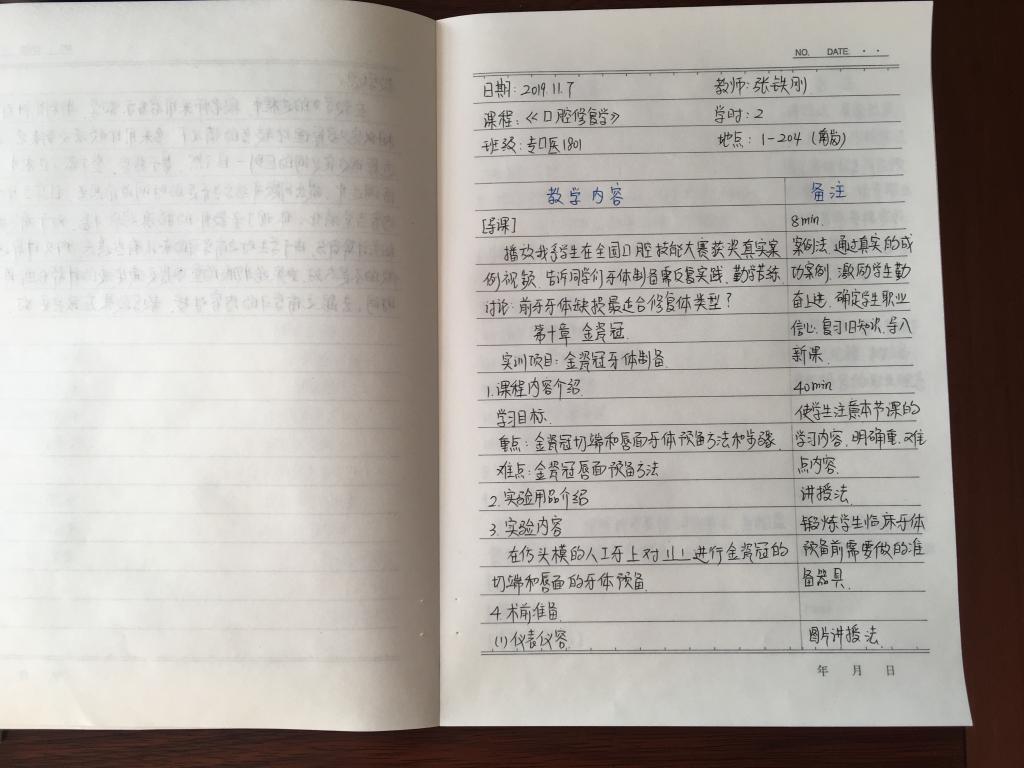 NO. DATE
日期：2019.11.7 教师：张铁刚
课程：《口腔修复学》 学时：2
班级：专口医1801 地点：1-204（南岗）
教学内容 备注
[导课] 8min.
播放我系学生在全国口腔技能大赛获奖真实案 案例法.通过真实的成
例视频.告诉同学们牙体制备需反复实践.勤学苦练 功案例.激励学生勤
讨论：前牙牙体缺损最适合修复体类型？ 奋上进.确定学生职业
第十章 金瓷冠. 信心.复习旧知识.导入
实训项目：金瓷冠牙体制备. 新课.
1.课程内容介绍. 40min
学习目标. 使学生注意本节课的
重点：金瓷冠切端和唇面牙体预备方法和步骤. 学习内容.明确重.难
难点：金瓷冠唇面预备方法 点内容.
2.实验用品介绍 讲授法.
3.实验内容 锻炼学生临床牙体
在仿头模的人工牙上对 1|1 进行金瓷冠的 预备前需要做的准
切端和唇面的牙体预备. 备器具.
4.术前准备.
(1)仪表仪容. 图片讲授法.
年 月 日